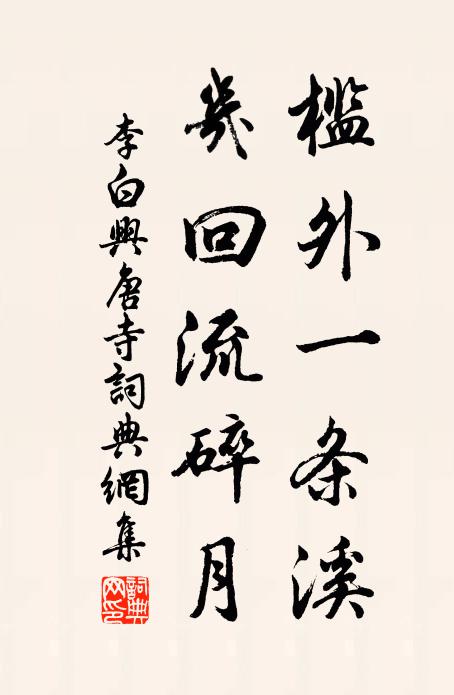 檻外一条溪
幾回流碎月
李白興唐寺詞典網集
詞典网印